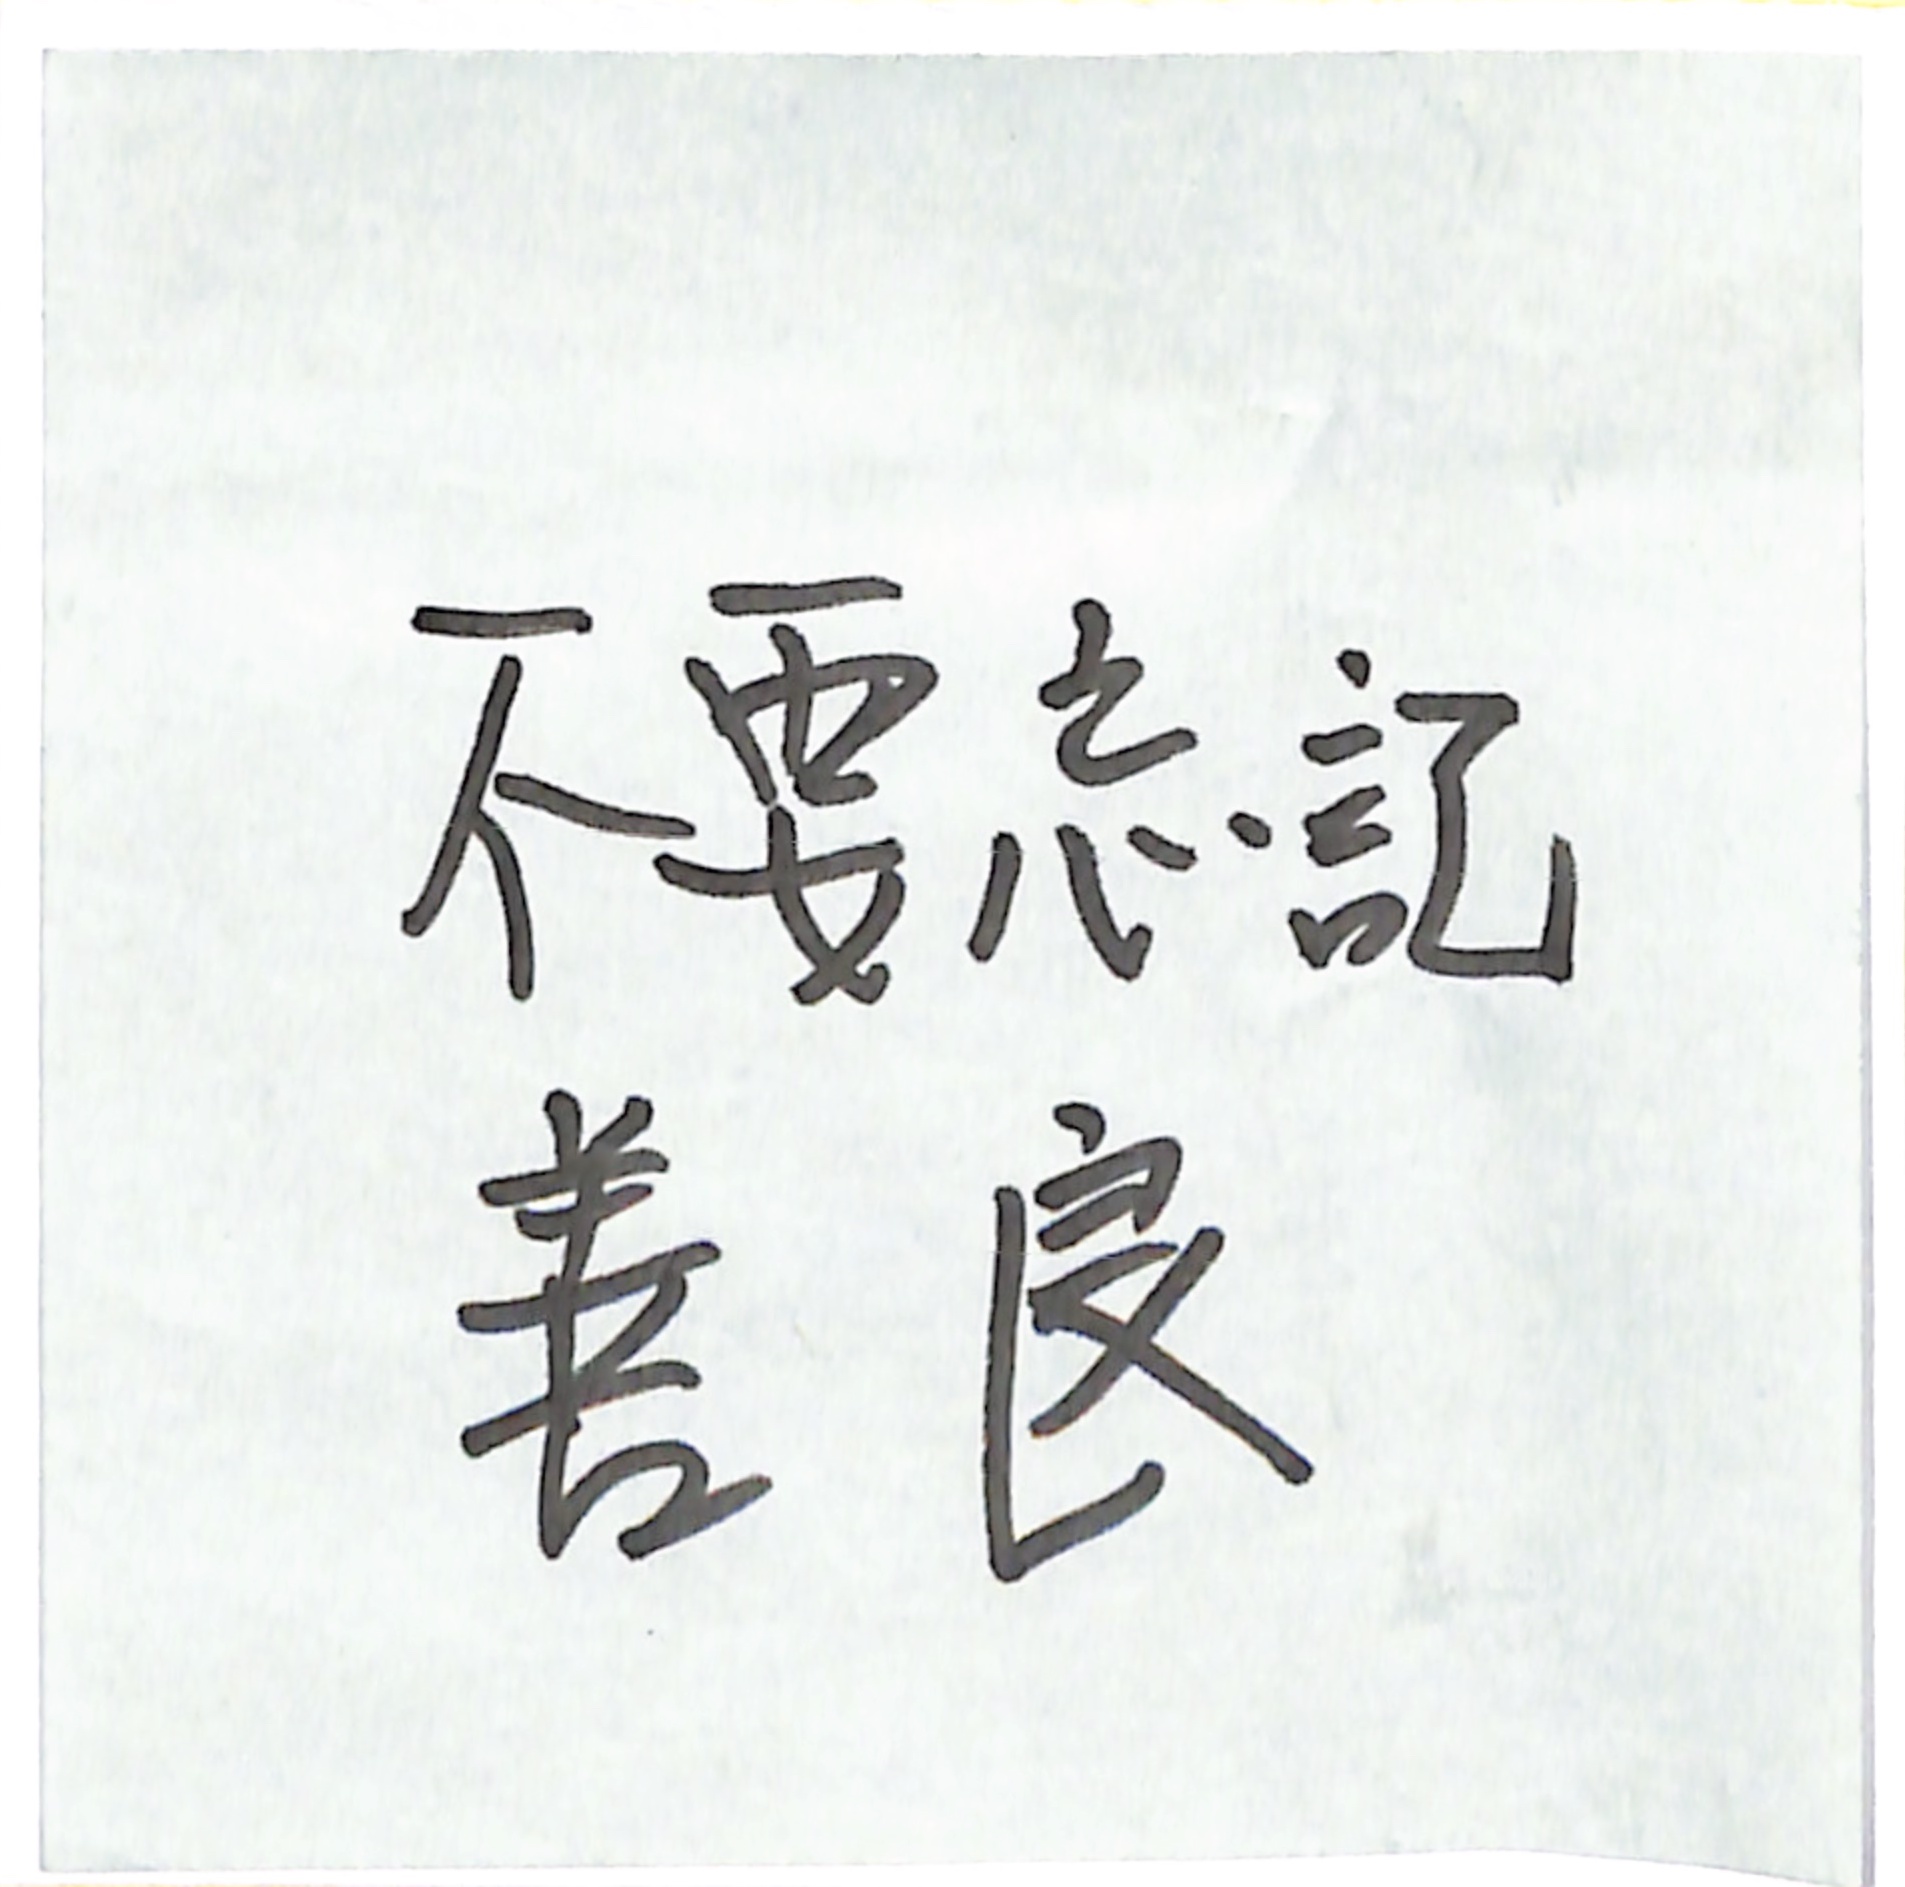 不要忘記
善良